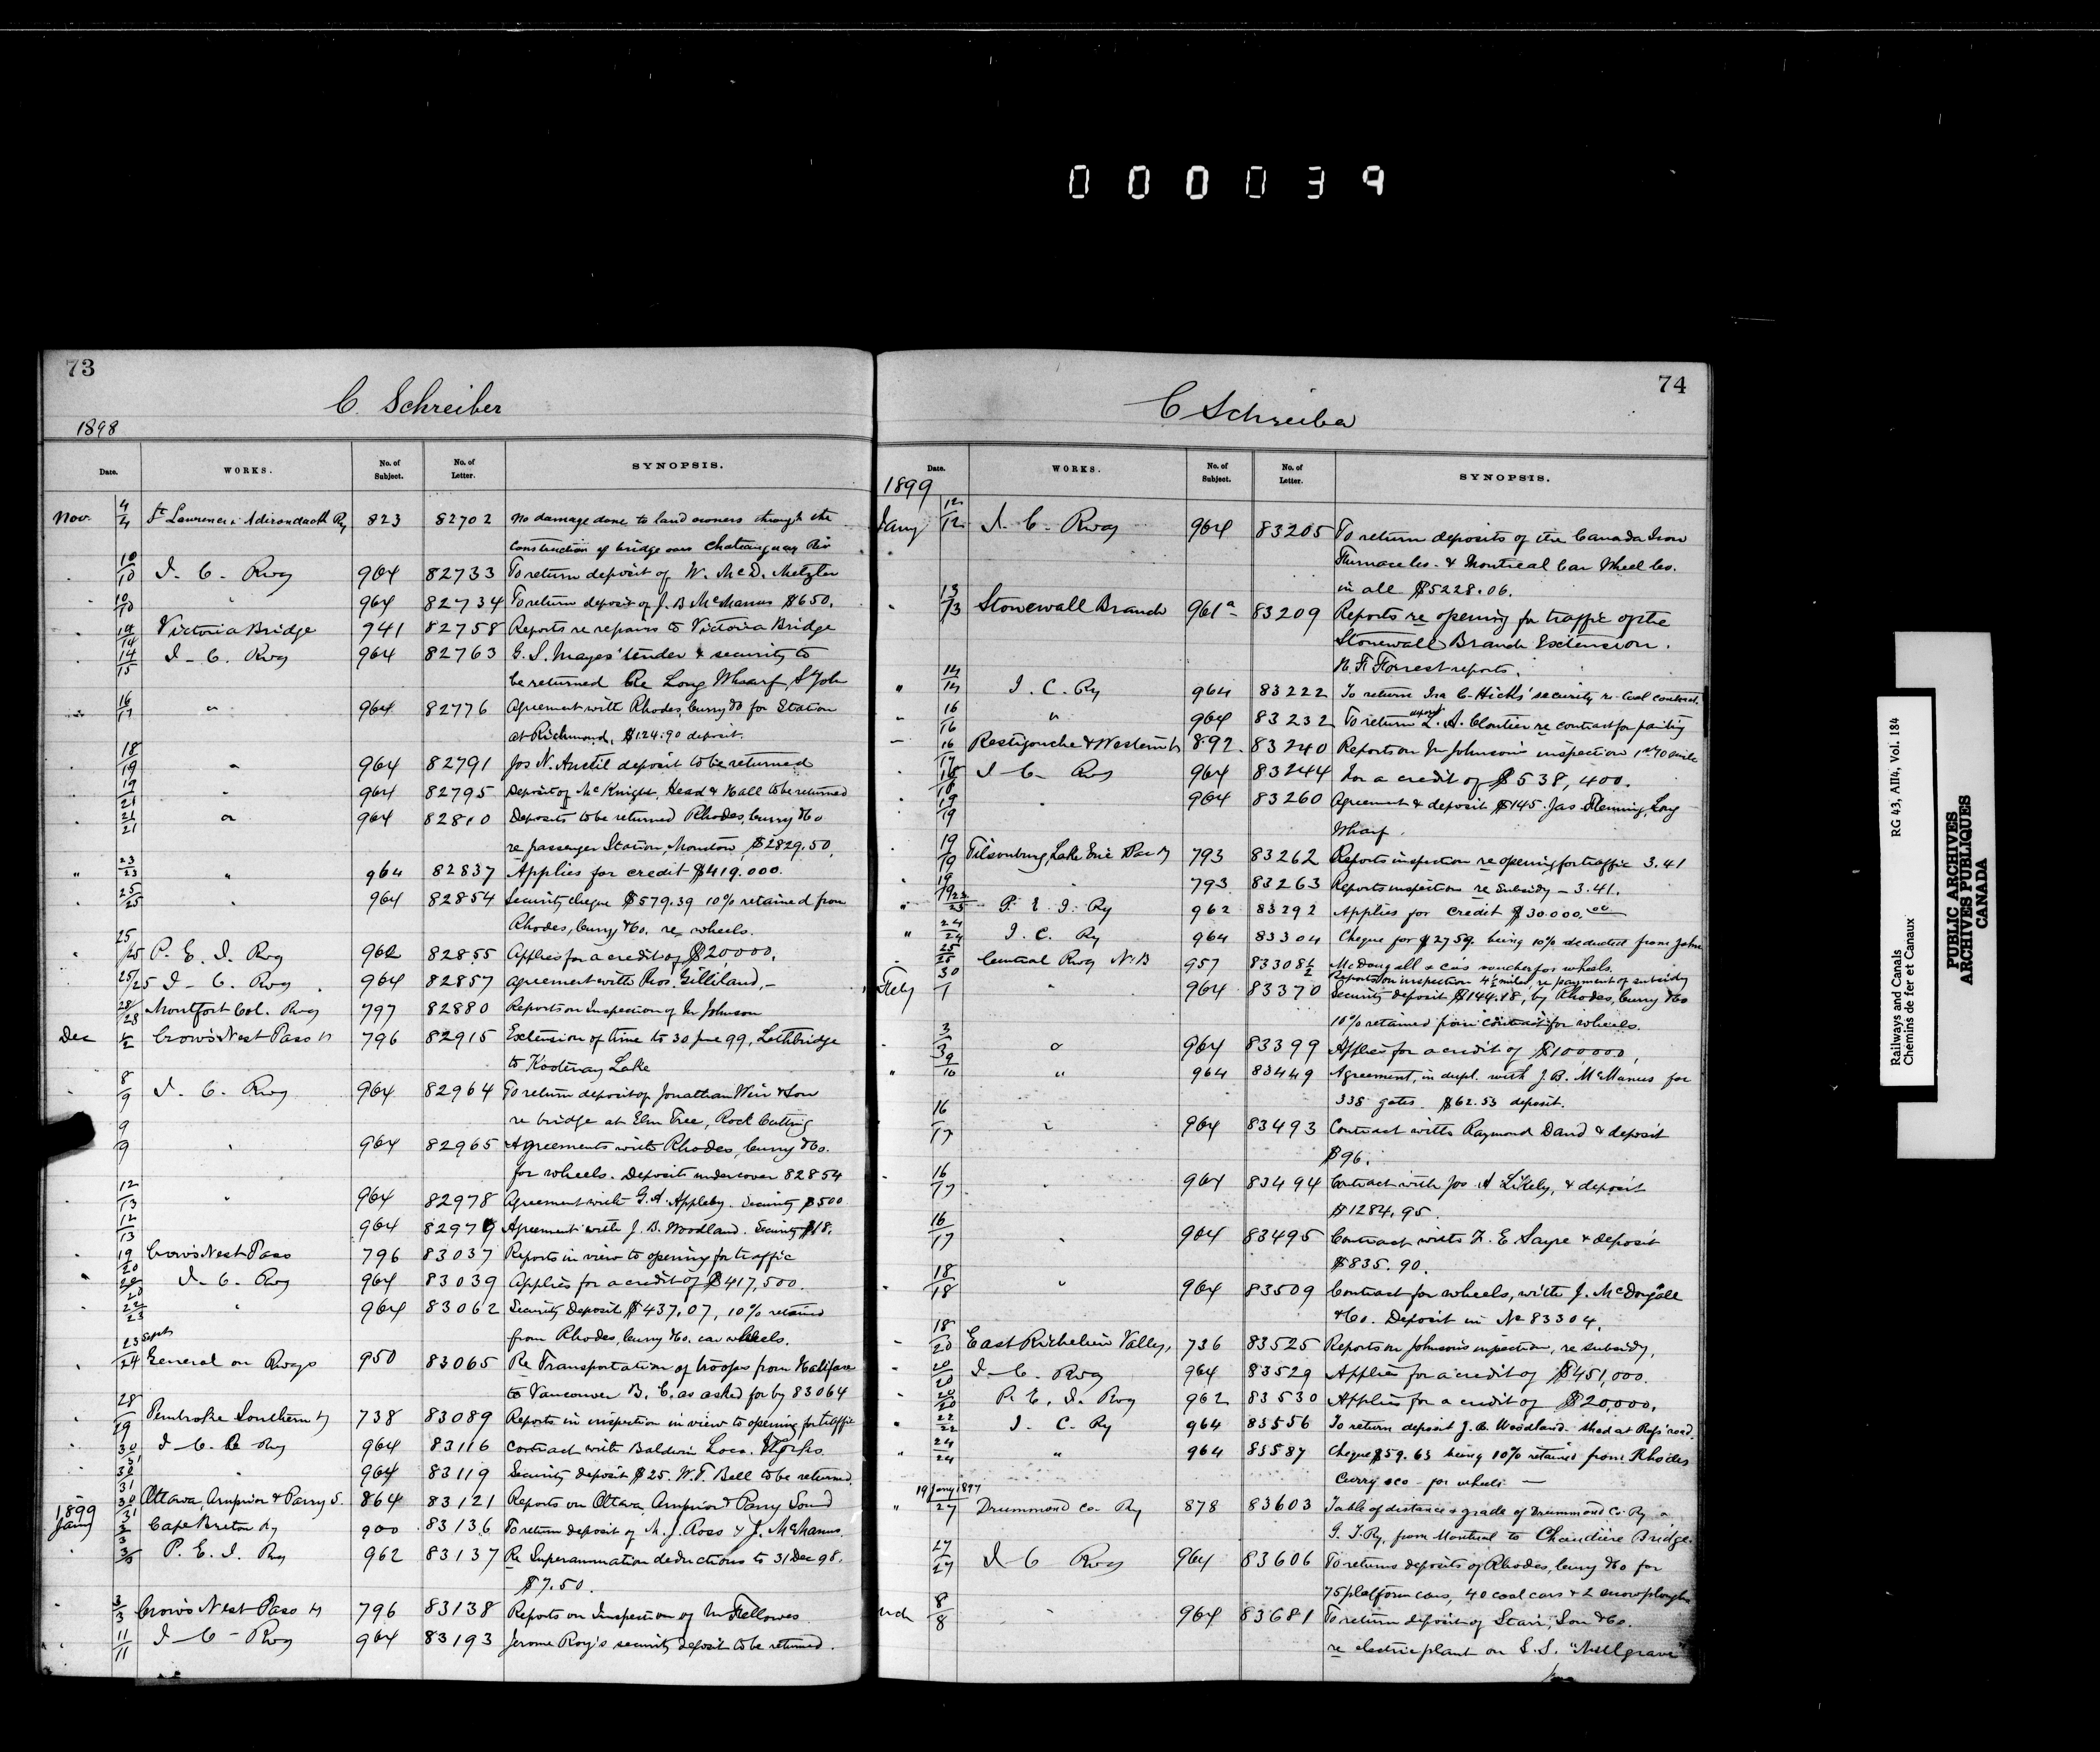 000039
73
C. Schreiber
1898
Date. WORKS. No. of Subject. No. of Letter. SYNOPSIS.
Nov. 4/4 St Lawrence & Adirondack Ry 823 82702 No damage done to land owners through the
construction of bridge over Chateauguay Riv
10/10 I. C. Rwy 964 82733 To return deposit of W. McD. Metzler
" 10/10 " 964 82734 To return deposit of J. B McManus $650.
" 14/14 Victoria Bridge 941 82758 Reports re repairs to Victoria Bridge
" 14/15 I. C. Rwy 964 82763 G. S. Mayes' tender & security to
be returned Re Long Wharf, St John
" 16/17 " 964 82776 Agreement with Rhodes, Curry &Co for Station
at Richmond, $124.90 deposit.
18/19 " 964 82791 Jos N. Anctil deposit to be returned
19/21 " 964 82795 Deposit of McKnight, Head & Hall to be returned
" 21/21 " 964 82810 Deposits to be returned Rhodes, Curry &Co
re passenger Station, Moncton, $2829.50.
" 23/23 " 964 82837 Applies for credit $419.000.
" 25/25 " 964 82854 Security cheque $579.39 10% retained from
Rhodes, Curry &Co. re wheels.
" 25/25 P. E. I. Rwy 962 82855 Applies for a credit of $20,000.
25/25 I. C. Rwy 964 82857 Agreement with Thos. Gilliland,-
28/28 Montfort Col. Rwy 797 82880 Reports on Inspection of Mr Johnson
Dec 2/2 Crow's Nest Pass Ry 796 82915 Extension of time to 30 June 99, Lethbridge
to Kootenay Lake
" 8/9 I. C. Rwy 964 82964 To return deposit of Jonathan Weir & Son
re bridge at Elm Tree, Rock Cutting
9/9 " 964 82965 Agreements with Rhodes, Curry &Co.
for wheels. Deposit under cover 82854
" 12/13 " 964 82978 Agreement with G. A. Appleby. Security $500
12/13 964 82979 Agreement with J. B. Woodland. Security $18.
" 19/20 Crow's Nest Pass 796 83037 Reports in view to opening for traffic
" 20/20 I. C. Rwy 964 83039 Applies for a credit of $417,500.
" 22/23 " 964 83062 Security Deposit $437.07, 10% retained
from Rhodes, Curry &Co. car wheels.
" 23 Sept/24 General on Rwys 950 83065 Re Transportation of troops from Halifax
to Vancouver B. C. as asked for by 83064
" 28/29 Pembroke Southern Ry 738 83089 Reports in inspection in view to opening for traffic
" 30/31 I. C. Ry 964 83116 Contract with Baldwin Loco. Works.
" 30/31 " 964 83119 Security deposit $25. W. T. Bell to be returned
" 30/31 Ottawa, Arnprior & Parry S. 864 83121 Reports on Ottawa Arnprior & Parry Sound
1899
Jany 3/3 Cape Breton Ry 900 83136 To return deposit of M. J. Ross & J. McManus.
" 3/3 P. E. I. Ry 962 83137 Re Superannuation deductions to 31 Dec 98.
$7.50.
" 3/3 Crow's Nest Pass Ry 796 83138 Reports on Inspection of Mr Fellowes
" 11/11 I. C. Rwy 964 83193 Jerome Roy's security deposit to be returned.
74
C Schreiber
Date. WORKS. No. of Subject. No. of Letter. SYNOPSIS.
1899
Jany 12/12 I. C. Rwy 964 83205 To return deposits of the Canada Iron
Furnace Co. & Montreal Car Wheel Co.
in all $5228.06.
" 13/13 Stonewall Branch 961a 83209 Reports re opening for traffic of the
Stonewall Branch Extension.
H. F. Forrest reports.
" 14/14 I. C. Ry 964 83222 To return Ira C. Hicks' security re Coal contract.
" 16/16 " 964 83232 To return deposit L. A. Cloutier re contract for painting
16/17 Restigouche & Western Ry 892. 83240 Reports on Mr Johnson's inspection 1st 10 miles
" 18/18 I. C. Rwy 964 83244 For a credit of $538,400.
" 19/19 " 964 83260 Agreement & deposit $145. Jas Fleming, Long
Wharf.
" 19/19 Tilsonburg, Lake Erie & Pac Ry 793 83262 Reports inspection re opening for traffic 3.41
" 19/19 793 83263 Reports inspection re Subsidy - 3.41.
" 23/25 P. E. I. Ry 962 83292 Applies for Credit $30.000.00
" 24/24 I. C. Ry 964 83304 Cheque for $2759. being 10% deducted from John
McDougall & Co's voucher for wheels.
" 25/25 Central Rwy N.B 957 83308½ Reports on inspection 4½ miles re payment of subsidy
Feby 30/1 " 964 83370 Security deposit $144.18, by Rhodes, Curry &Co
10% retained from contract for wheels.
" 3/3 " 964 83399 Applies for a credit of $100,000,
" 9/10 " 964 83449 Agreement, in dupl. with J. B. McManus for
338 gates. $62.53 deposit.
16/17 " 964 83493 Contract with Raymond David & deposit
$96.
16/17 " 964 83494 Contract with Jos A Likely, & deposit
$1284.95.
16/17 " 964 83495 Contract with F. E Sayre & deposit
$835.90.
" 18/18 " 964 83509 Contract for wheels, with J. McDougall
&Co. Deposit in No 83304.
" 18/20 East Richelieu Valley, 736 83525 Reports on Johnson's inspection, re subsidy,
" 20/20 I. C. Rwy 964 83529 Applies for a credit of $451,000.
" 20/20 P. E. I. Rwy 962 83530 Applies for a credit of $20,000.
" 22/22 I. C. Ry 964 83556 To return deposit J. B. Woodland. Shed at Rogs' road.
" 24/24 " 964 83587 Cheque $59.63 being 10% retained from Rhodes
Curry & Co - for wheels -
" 19 Jany 1897/27 Drummond Co. Ry 878 83603 Table of distances & grade of Drummond Co. Ry &
G. T. Ry. from Montreal to Chaudiere Bridge.
27/27 I C Rwy 964 83606 To return deposits of Rhodes, Curry &Co for
75 platform cars, 40 coal cars & 2 snowploughs
Mch 8/8 " 964 83681 To return deposit of Starr, Son &Co.
re electric plant on S.S. "Mulgrave"
Railways and Canals RG 43, AII4, Vol. 184
Chemins de fer et Canaux
PUBLIC ARCHIVES
ARCHIVES PUBLIQUES
CANADA